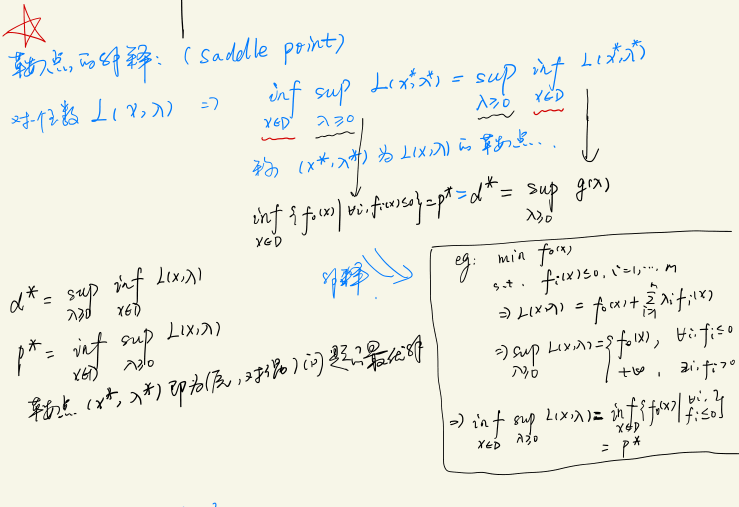 鞍点的解释:(saddle point)
对任数 L(x,λ) => inf x∈D sup λ≥0 L(x*,λ*) = sup λ≥0 inf x∈D L(x*,λ*)
称 (x*,λ*) 为 L(x,λ) 的鞍点..
inf x∈D {f₀(x) | ∀i, fᵢ(x)≤0} = p* = d* = sup λ≥0 g(λ)
解释.
d* = sup λ≥0 inf x∈D L(x,λ)
p* = inf x∈D sup λ≥0 L(x,λ)
鞍点 (x*,λ*) 即为(原,对偶)问题的最优解
eg: min f₀(x)
s.t. fᵢ(x)≤0, i=1,... m
=> L(x,λ) = f₀(x) + Σ i=1 λᵢfᵢ(x)
=> sup λ≥0 L(x,λ) = { f₀(x), ∀i, fᵢ≤0
+∞, ∃i, fᵢ>0
=> inf x∈D sup λ≥0 L(x,λ) = inf x∈D {f₀(x) | ∀i, fᵢ≤0}
= p*